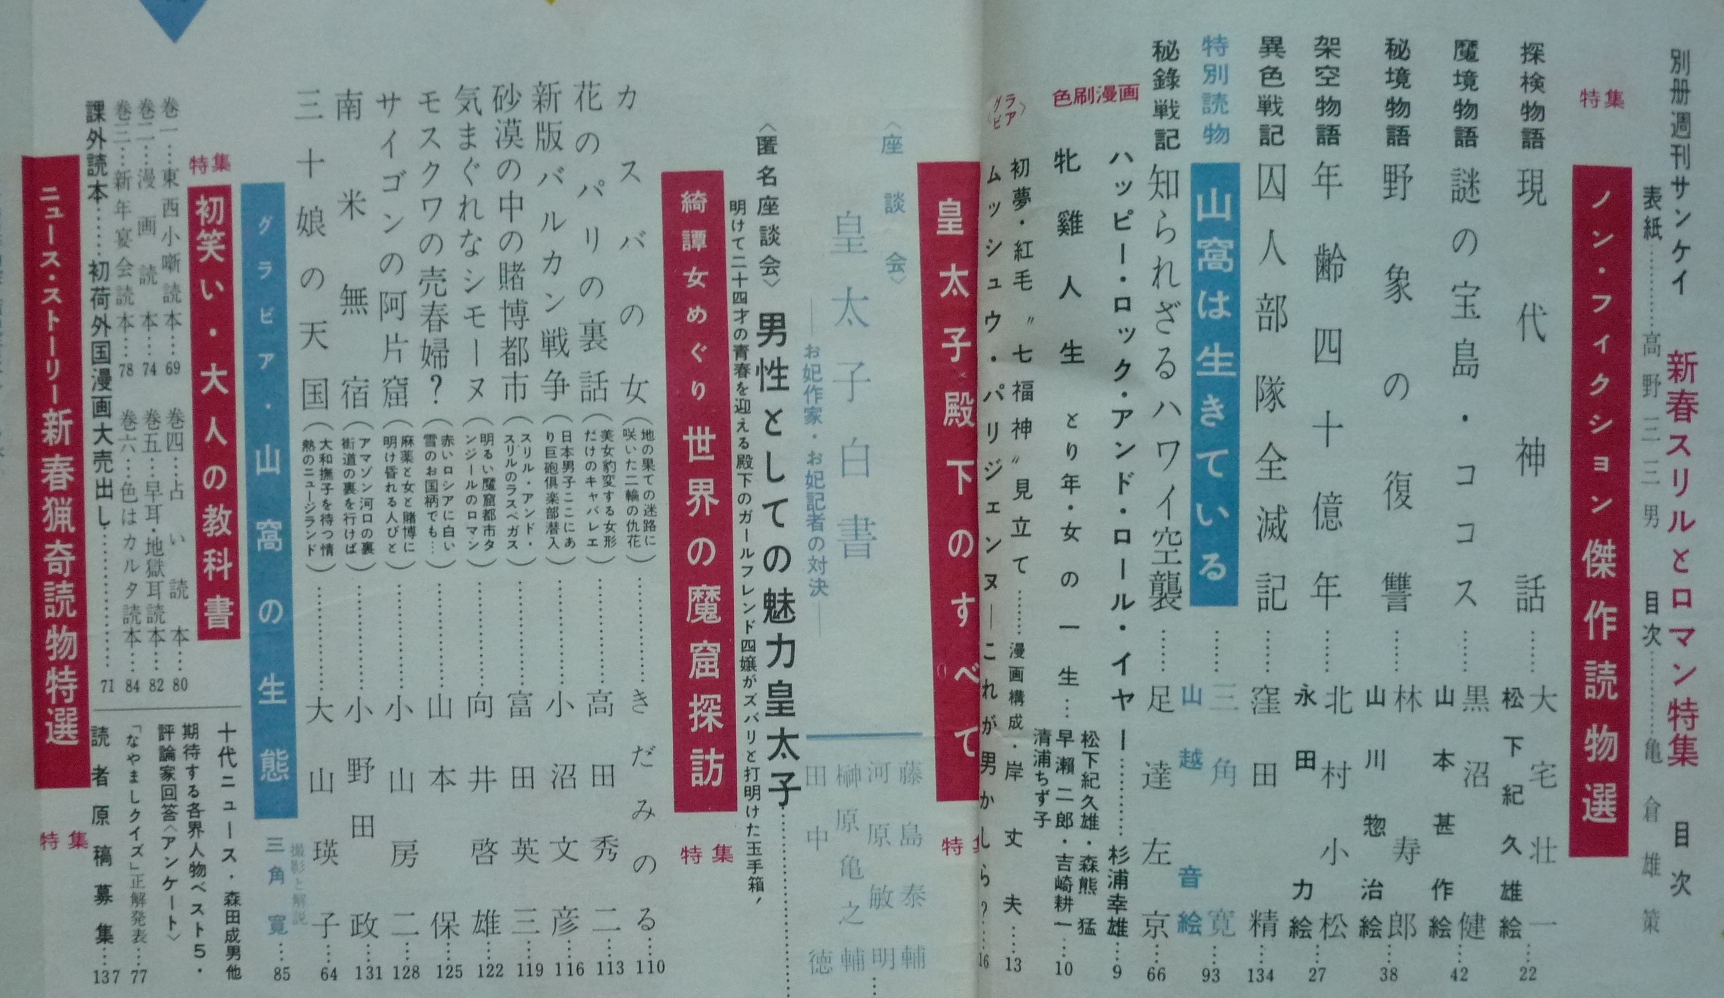 別册週刊サンケイ 新春スリルとロマン特集 目次
表紙………高野三三男 目次………亀倉雄策
特集
ノン・フィクション 傑作読物選
探検物語 現代神話……大宅壮一 松下紀久雄絵 22
魔境物語 謎の宝島・ココス……黒沼健 山本甚作絵 42
秘境物語 野象の復讐……林寿郎 山川惣治絵 38
架空物語 年齢四十億年……北村小松 永田力絵 27
異色戦記 囚人部隊全滅記……窪田精 134
特別読物 山窩は生きている……三角寛 山越音絵 93
秘錄戦記 知られざるハワイ空襲……足達左京 66
色刷漫画
ハッピー・ロック・アンド・ロール・イヤー………杉浦幸雄…9
牝雞人生 とり年・女の一生…松下紀久雄・森熊猛 早瀬二郎・吉崎耕一 清浦ちず子…10
〈グラビア〉
初夢・紅毛〝七福神〟見立て……漫画構成・岸丈夫…13
ムッシュウ・パリジェンヌ―これが男かしら?…16
特集
皇太子殿下のすべて
〈座談会〉
皇太子白書
―お妃作家・お妃記者の対決―
藤島泰輔
河原敏明
榊原亀之輔
田中徳
〈匿名座談会〉 男性としての魅力皇太子………
明けて二十四才の青春を迎える殿下のガールフレンド四嬢がズバリと打明けた玉手箱、
綺譚女めぐり 世界の魔窟探訪
特集
カスバの女(地の果ての迷路に咲いた二輪の仇花)………きだみのる…110
花のパリの裏話(美女豹変する女形だけのキャバレエ)………高田秀二…113
新版バルカン戦争(日本男子ここにあり巨砲俱楽部潜入)………小沼文彦…116
砂漠の中の賭博都市(スリル・アンド・スリルのラスベガス)………富田英三…119
気まぐれなシモーヌ(明るい魔窟都市タンジールのロマン)………向井啓雄…122
モスクワの売春婦?(赤いロシアに白い雪のお国柄でも…)………山本保…125
サイゴンの阿片窟(麻薬と女と賭博に明け昏れる人びと)………小山房二…128
南米無宿(アマゾン河口の裏街道の裏を行けば)………小野田政…131
三十娘の天国(大和撫子を待つ情熱のニュージランド)………大山瑛子…64
グラビア・山窩の生態 撮影と解説 三角寛…85
特集
初笑い・大人の教科書
巻一…東西小噺読本…69 巻四…占い読本…80
巻二…漫画読本…74 巻五…早耳・地獄耳読本…82
巻三…新年宴会読本…78 巻六…色はカルタ読本…84
課外読本……初荷外国漫画大売出し………71
十代ニュース・森田成男他
期待する各界人物ベスト5・
評論家回答〈アンケート〉
「なやましクイズ」正解発表…77
読者原稿募集…137
ニュース・ストーリー 新春猟奇読物特選
特集